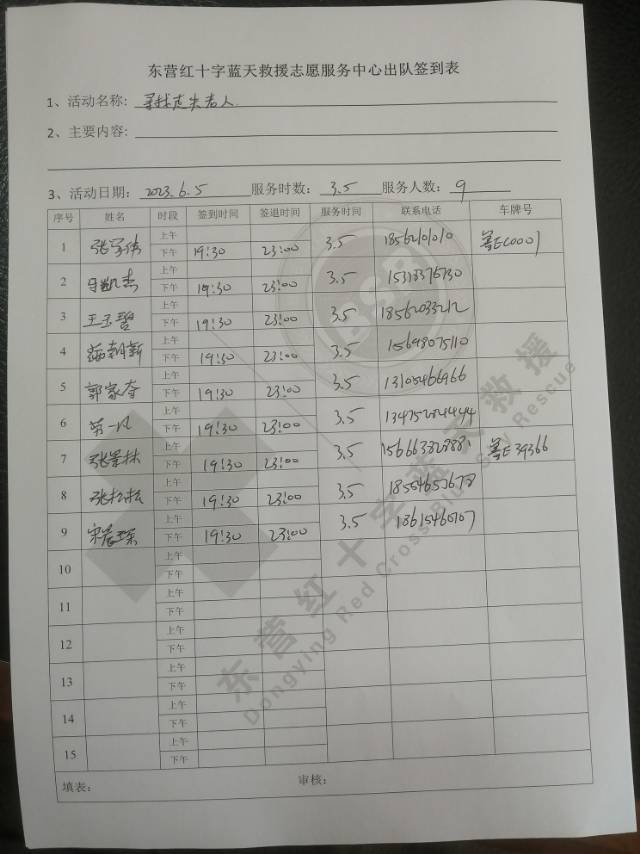 东营红十字蓝天救援志愿服务中心出队签到表
1、活动名称: 寻找走失老人
2、主要内容:
3、活动日期: 2023.6.5 服务时数: 3.5 服务人数: 9
序号 姓名 时段 签到时间 签退时间 服务时间 联系电话 车牌号
上午
1 下午 19:30 23:00 3.5
上午
2 下午 19:30 23:00 3.5
上午
3 王玉碧 下午 19:30 23:00 3.5 18562033212
上午
4 下午 19:30 23:00 3.5 15698075110
上午
5 郭家夺 下午 19:30 23:00 3.5 13105466966
上午
6 下午 19:30 23:00 3.5
上午
7 张军林 下午 19:30 23:00 3.5
上午
8 张松松 下午 19:30 23:00 3.5
上午
9 下午 19:30 23:00 3.5
上午
10 下午
上午
11 下午
上午
12 下午
上午
13 下午
上午
14 下午
上午
15 下午
填表: 审核:
东营红十字蓝天救援
Dongying Red Cross Blue Sky Rescue